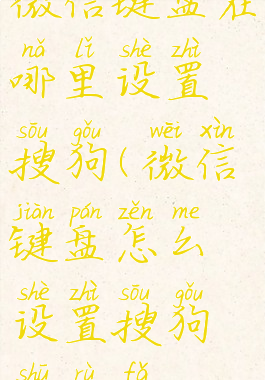 微信键盘在
nǎ lǐ shè zhì
哪里设置
sōu gǒu wēi xìn
搜狗(微信
jiàn pán zěn me
键盘怎么
shè zhì sōu gǒu
设置搜狗
shū rù fǎ